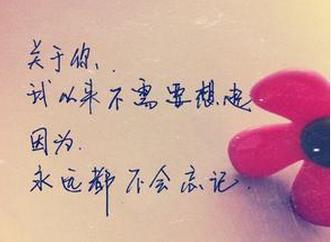 关于你,.
我从来不需要想起
因为.
永远都不会忘记.